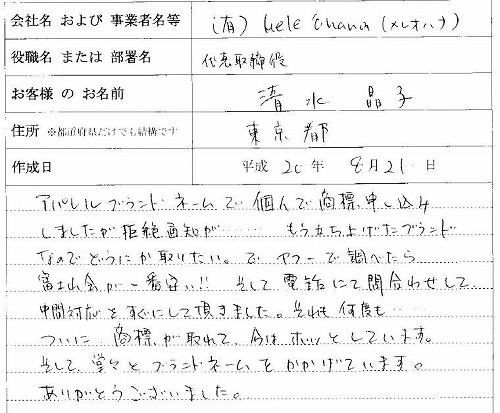 会社名 および 事業者名等 (有) Mele Ohana (メレオハナ)
役職名 または 部署名 代表取締役
お客様 の お名前 清水 晶子
住所 ※都道府県だけでも結構です 東京都
作成日 平成 20 年 8月21 日
アパレルブランドネームで個人で商標申し込み
しましたが拒絶通知が…… もう立ち上げたブランド
なのでどうにか取りたい。で ヤフーで調べたら
富士山会が一番安い!! そして 電話にて問合わせして
中間対応をすぐにして頂きました。それも何度も…
ついに 商標が取れて、今はホッとしています。
そして、堂々とブランドネームをかかげています。
ありがとうございました。